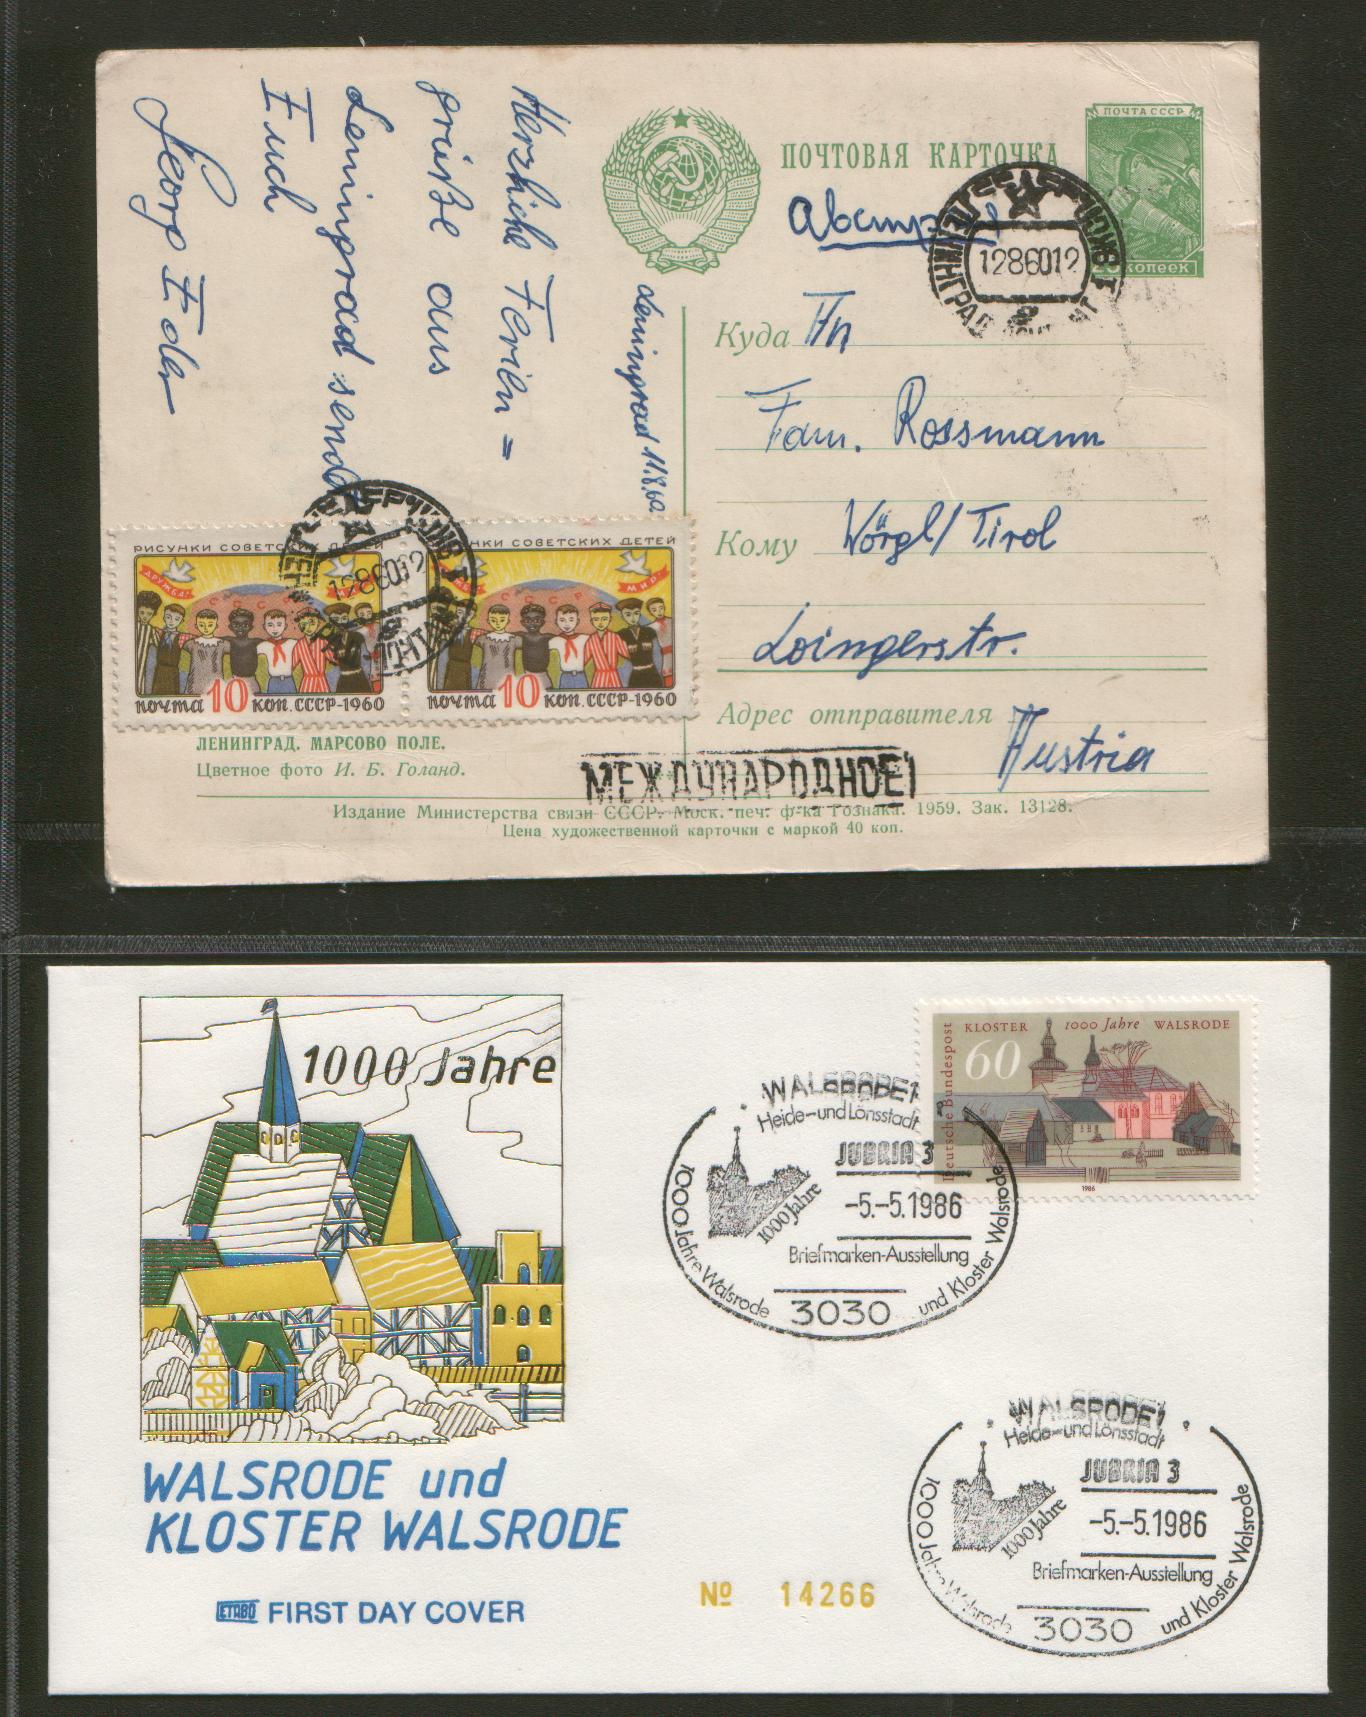 Herzliche Ferien =
grüße aus
Leningrad sendet
Euch
Georg Eder
Leningrad 11.8.60.
ПОЧТОВАЯ КАРТОЧКА
ПОЧТА СССР
копеек
Австрия
ЛЕНИНГРАД
1286012
Куда An
Fam. Rossmann
Кому Wörgl/Tirol
Loingerstr.
Адрес отправителя
Austria
РИСУНКИ СОВЕТСКИХ ДЕТЕЙ
ДРУЖБА!
СССР
почта 10 коп. СССР-1960
1286012
НКИ СОВЕТСКИХ ДЕТЕЙ
МИР!
СССР
почта 10 коп. СССР-1960
ЛЕНИНГРАД. МАРСОВО ПОЛЕ.
Цветное фото И. Б. Голанд.
МЕЖДУНАРОДНОЕ
Издание Министерства связи СССР. Моск. печ. ф-ка Гознака. 1959. Зак. 13128.
Цена художественной карточки с маркой 40 коп.
1000 Jahre
WALSRODE und
KLOSTER WALSRODE
ETABO FIRST DAY COVER
№ 14266
KLOSTER 1000 Jahre WALSRODE
60
Deutsche Bundespost
1986
WALSRODE 1
Heide-und Lönsstadt
JUBRIA 3
1000 Jahre
-5.-5.1986
Briefmarken-Ausstellung
1000 Jahre Walsrode und Kloster Walsrode
3030
WALSRODE 1
Heide-und Lönsstadt
JUBRIA 3
1000 Jahre
-5.-5.1986
Briefmarken-Ausstellung
1000 Jahre Walsrode und Kloster Walsrode
3030